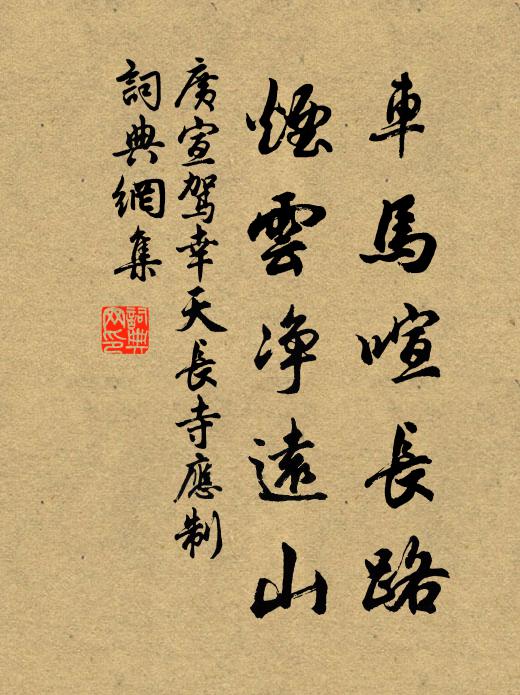 車馬喧長路
煙雲净遠山
廣宣駕幸天長寺應制
詞典網集
詞典网印